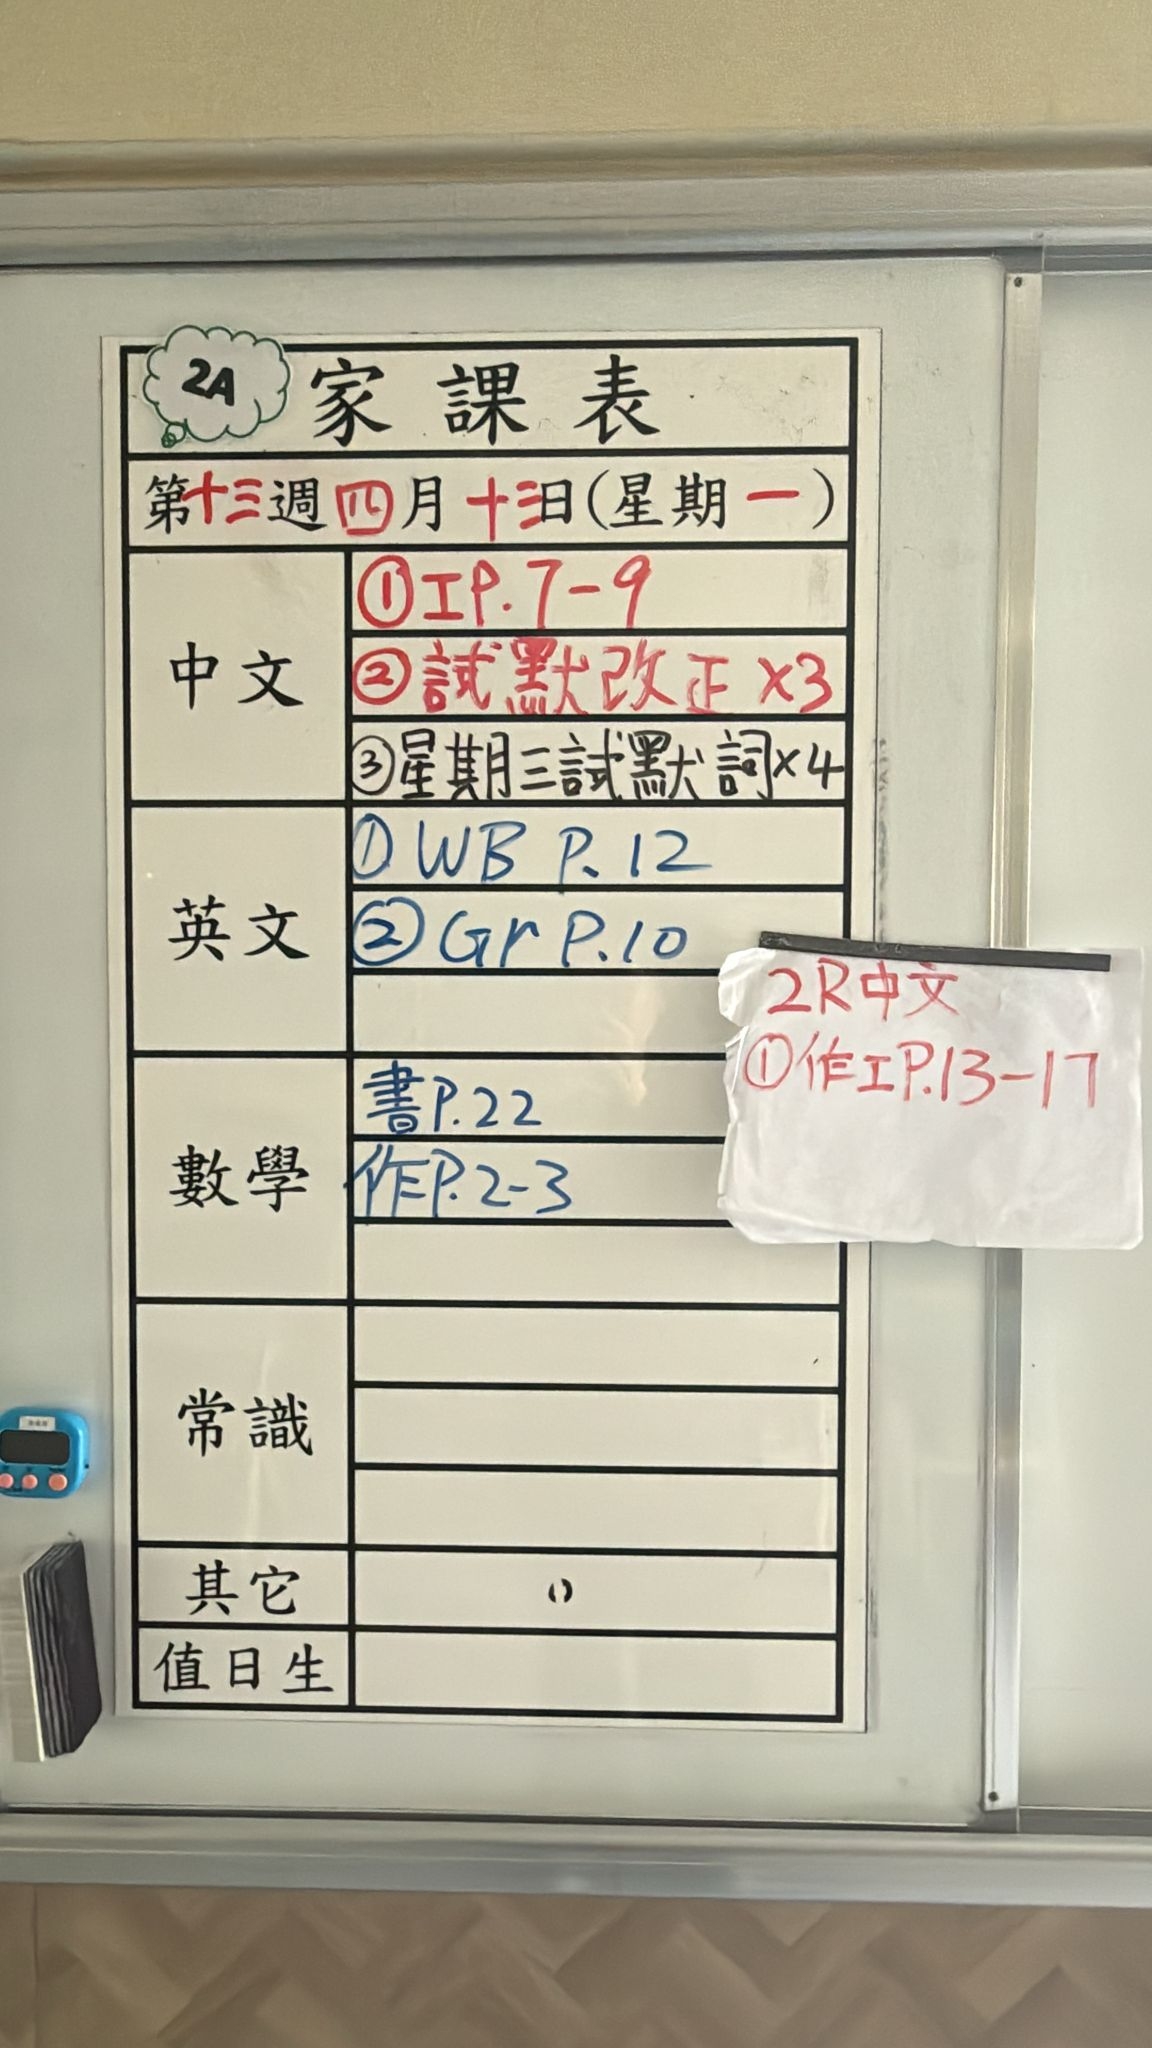 2A 家課表
第十三週四月十三日(星期一)
中文
①工P.7-9
②試默改正×3
③星期三試默詞×4
英文
①WB P.12
②Gr P.10
數學
書P.22
作P.2-3
2R中文
①作工P.13-17
常識
其它
值日生